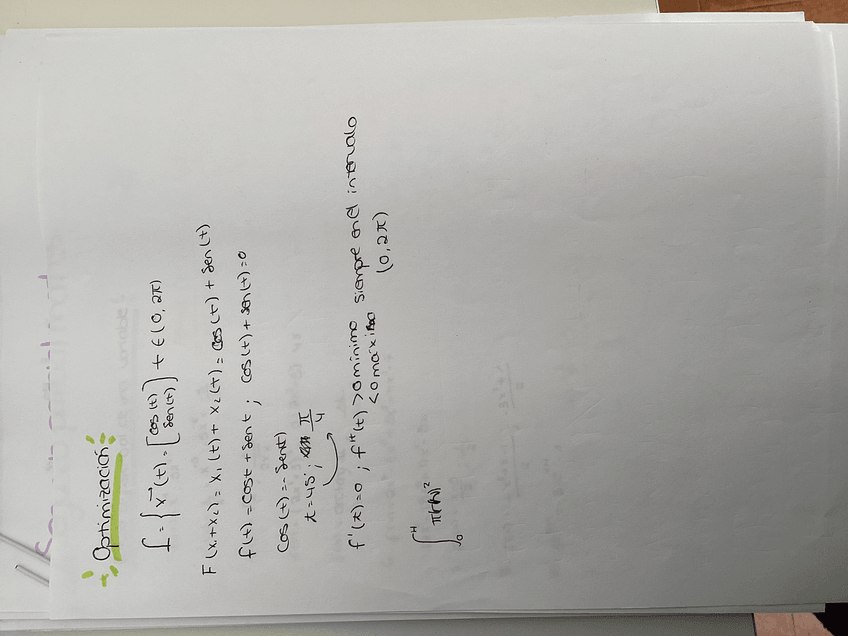 Optimización
f = { x⃗(t) = [cos(t) sen(t)] t ∈ (0, 2π)
F(x₁+x₂) = x₁(t) + x₂(t) = cos(t) + sen(t)
f(t) = cos t + sen t ; cos(t) + sen(t) = 0
cos(t) = - sen(t)
t = 45° ; π/4
f'(t) = 0 ; f''(t) > 0 mínimo siempre en el intervalo
< 0 máximo (0, 2π)
∫₀ᴴ π r(h)²